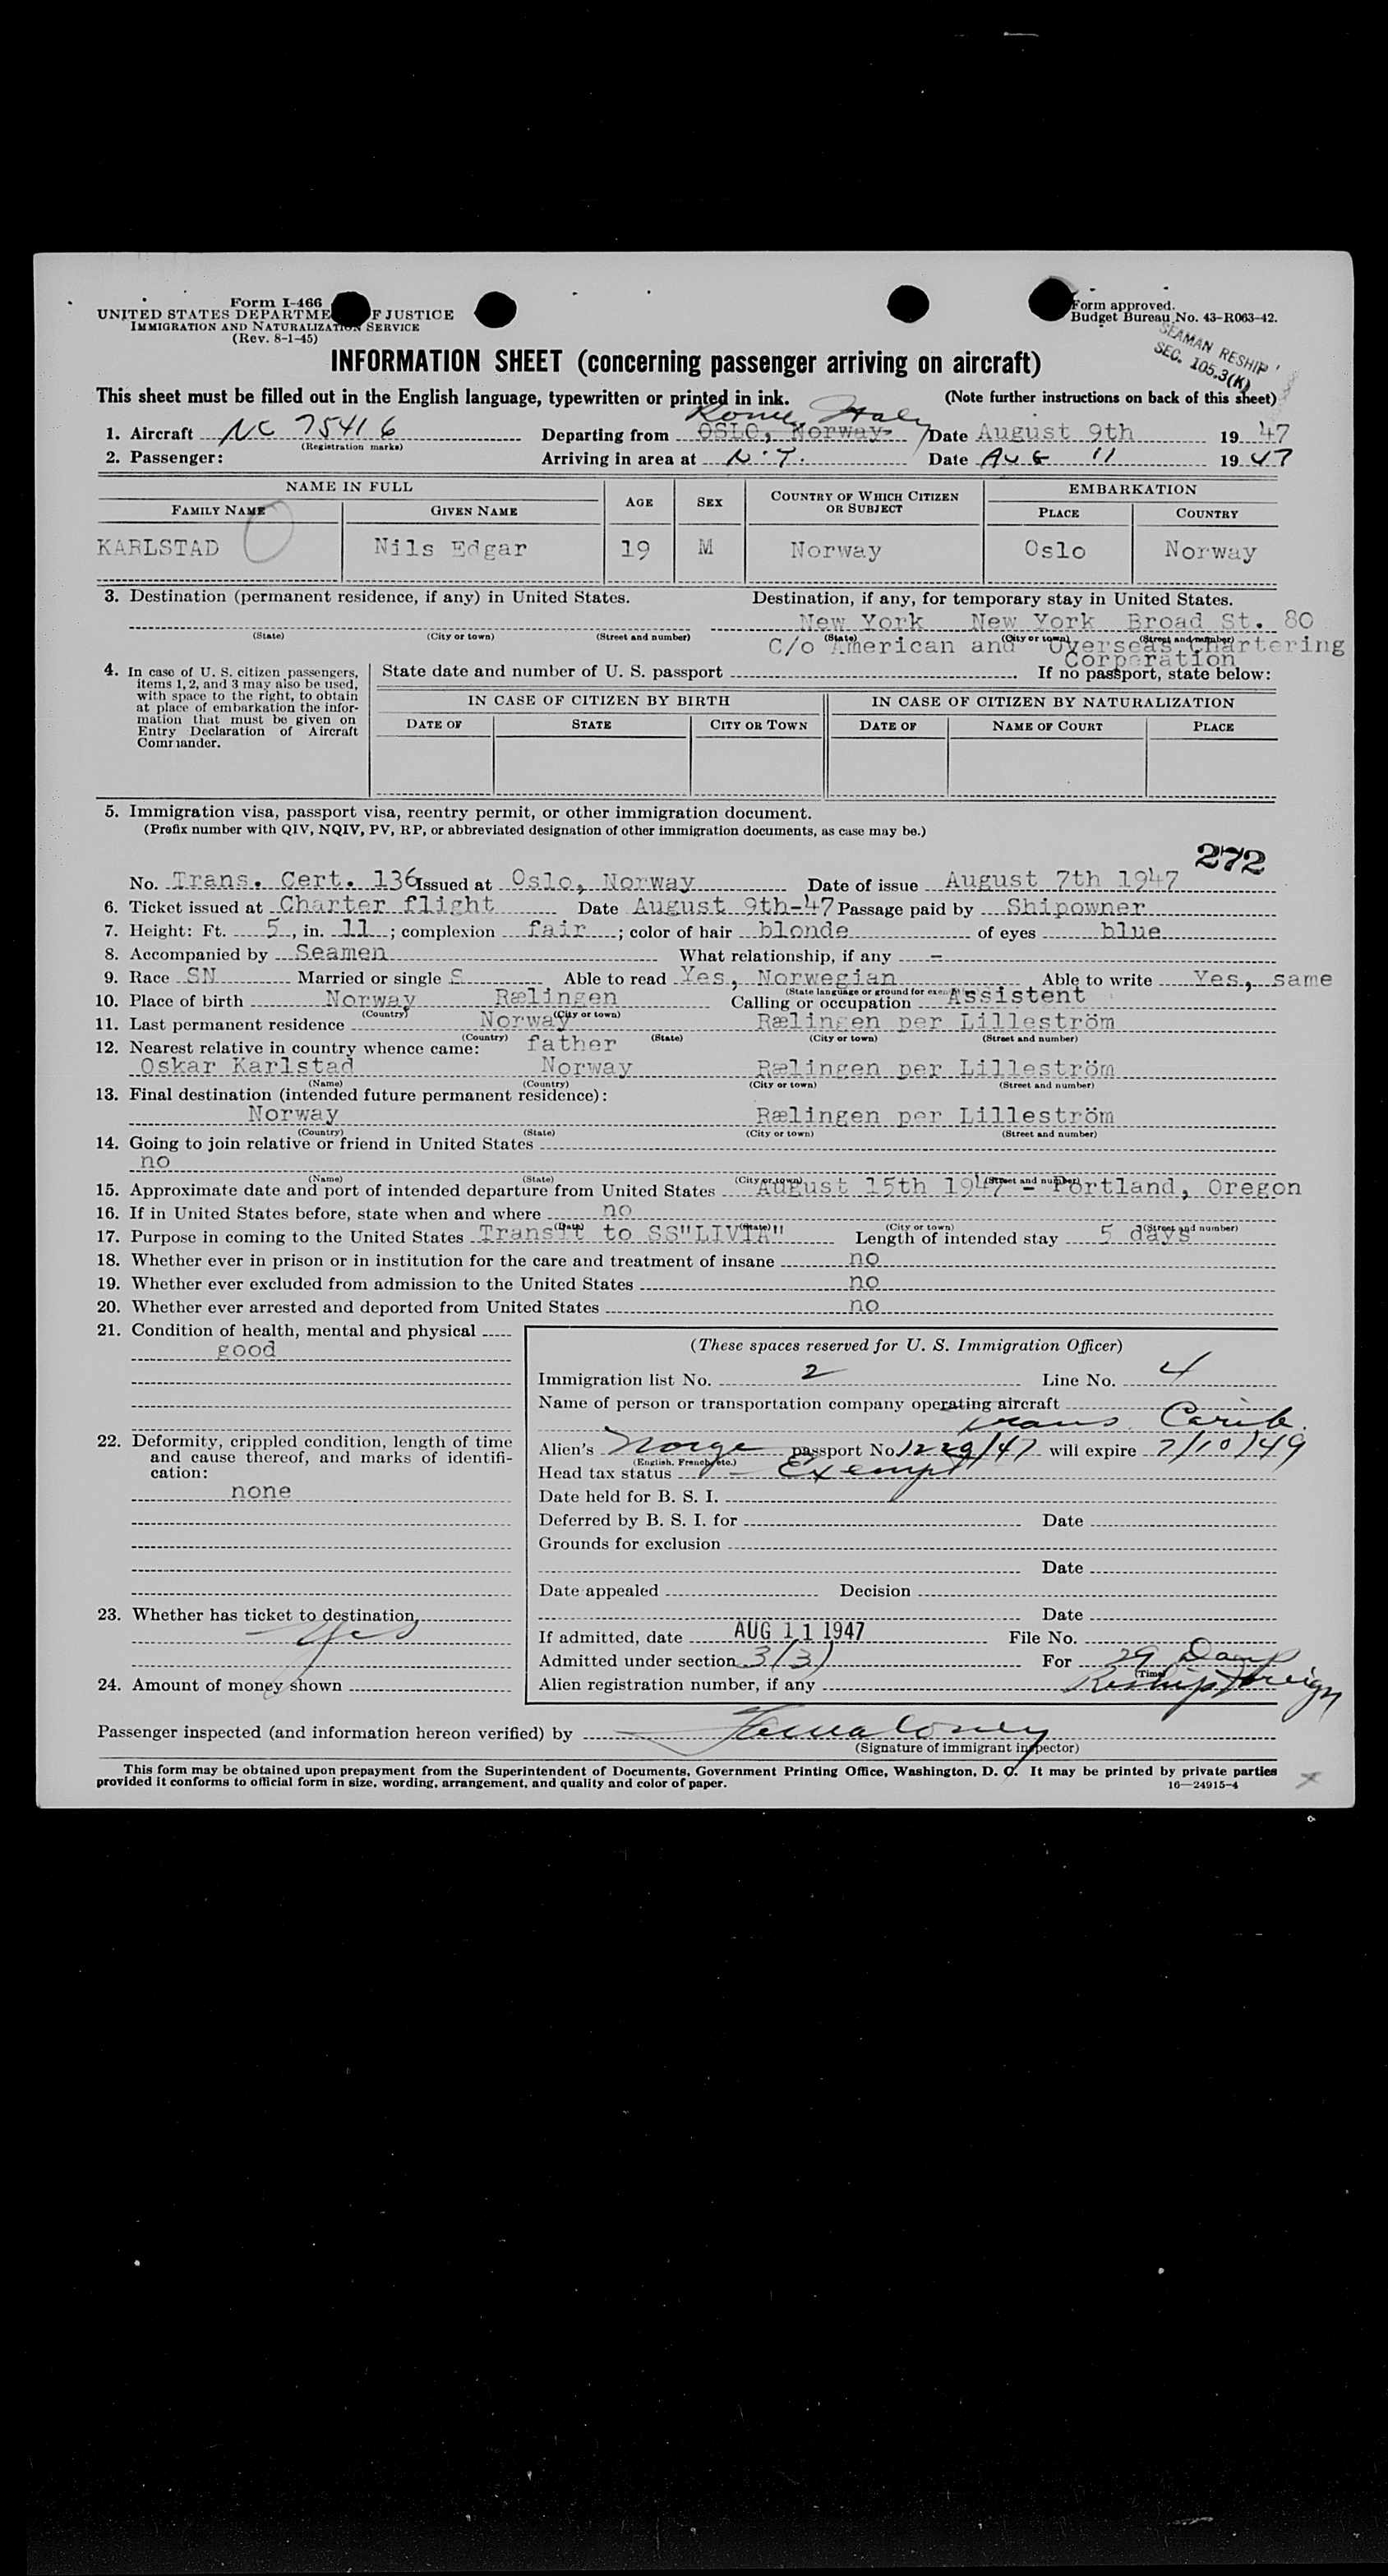 Form I-466
UNITED STATES DEPARTME F JUSTICE
IMMIGRATION AND NATURALIZATION SERVICE
(Rev. 8-1-45)
Form approved.
Budget Bureau No. 43-R063-42.
SEAMAN RESHIP
SEC. 105.3(K)
INFORMATION SHEET (concerning passenger arriving on aircraft)
This sheet must be filled out in the English language, typewritten or printed in ink. (Note further instructions on back of this sheet)
Rome, Italy
1. Aircraft NC 75416 Departing from OSLO, Norway Date August 9th 19 47
(Registration marks)
2. Passenger: Arriving in area at N.Y. Date AUG 11 19 47
NAME IN FULL AGE SEX COUNTRY OF WHICH CITIZEN OR SUBJECT EMBARKATION
FAMILY NAME GIVEN NAME PLACE COUNTRY
KARLSTAD Nils Edgar 19 M Norway Oslo Norway
3. Destination (permanent residence, if any) in United States. Destination, if any, for temporary stay in United States.
New York New York Broad St. 80
(State) (City or town) (Street and number) (State) (City or town) (Street and number)
C/o American and Overseas Chartering
Corporation
4. In case of U. S. citizen passengers, items 1, 2, and 3 may also be used, with space to the right, to obtain at place of embarkation the information that must be given on Entry Declaration of Aircraft Commander.
State date and number of U. S. passport If no passport, state below:
IN CASE OF CITIZEN BY BIRTH IN CASE OF CITIZEN BY NATURALIZATION
DATE OF STATE CITY OR TOWN DATE OF NAME OF COURT PLACE
5. Immigration visa, passport visa, reentry permit, or other immigration document.
(Prefix number with QIV, NQIV, PV, RP, or abbreviated designation of other immigration documents, as case may be.)
272
No. Trans. Cert. 136 Issued at Oslo, Norway Date of issue August 7th 1947
6. Ticket issued at Charter flight Date August 9th-47 Passage paid by Shipowner
7. Height: Ft. 5, in. 11; complexion fair; color of hair blonde of eyes blue
8. Accompanied by Seamen What relationship, if any -
9. Race SN Married or single S Able to read Yes, Norwegian Able to write Yes, same
(State language or ground for exemption)
10. Place of birth Norway Rælingen Calling or occupation Assistent
(Country) (City or town)
11. Last permanent residence Norway Rælingen per Lilleström
(Country) (State) (City or town) (Street and number)
12. Nearest relative in country whence came: father
Oskar Karlstad Norway Rælingen per Lilleström
(Name) (Country) (City or town) (Street and number)
13. Final destination (intended future permanent residence):
Norway Rælingen per Lilleström
(Country) (State) (City or town) (Street and number)
14. Going to join relative or friend in United States
no
(Name) (State) (City or town) (Street and number)
15. Approximate date and port of intended departure from United States August 15th 1947 - Portland, Oregon
16. If in United States before, state when and where no
(Date) (State) (City or town) (Street and number)
17. Purpose in coming to the United States Transit to SS"LIVIA" Length of intended stay 5 days
18. Whether ever in prison or in institution for the care and treatment of insane no
19. Whether ever excluded from admission to the United States no
20. Whether ever arrested and deported from United States no
21. Condition of health, mental and physical
good
22. Deformity, crippled condition, length of time and cause thereof, and marks of identification:
none
23. Whether has ticket to destination
Yes
24. Amount of money shown
(These spaces reserved for U. S. Immigration Officer)
Immigration list No. 2 Line No. 4
Name of person or transportation company operating aircraft
Trans. Carib.
Alien's Norge passport No 1229/47 will expire 7/10/49
(English, French, etc.)
Head tax status Exempt
Date held for B. S. I.
Deferred by B. S. I. for Date
Grounds for exclusion
Date
Date appealed Decision
Date
If admitted, date AUG 11 1947 File No.
Admitted under section 3(3) For 29 Days
(Time)
Alien registration number, if any Reship Foreign
Passenger inspected (and information hereon verified) by
(Signature of immigrant inspector)
This form may be obtained upon prepayment from the Superintendent of Documents, Government Printing Office, Washington, D. C. It may be printed by private parties
provided it conforms to official form in size, wording, arrangement, and quality and color of paper. 16—24915-4